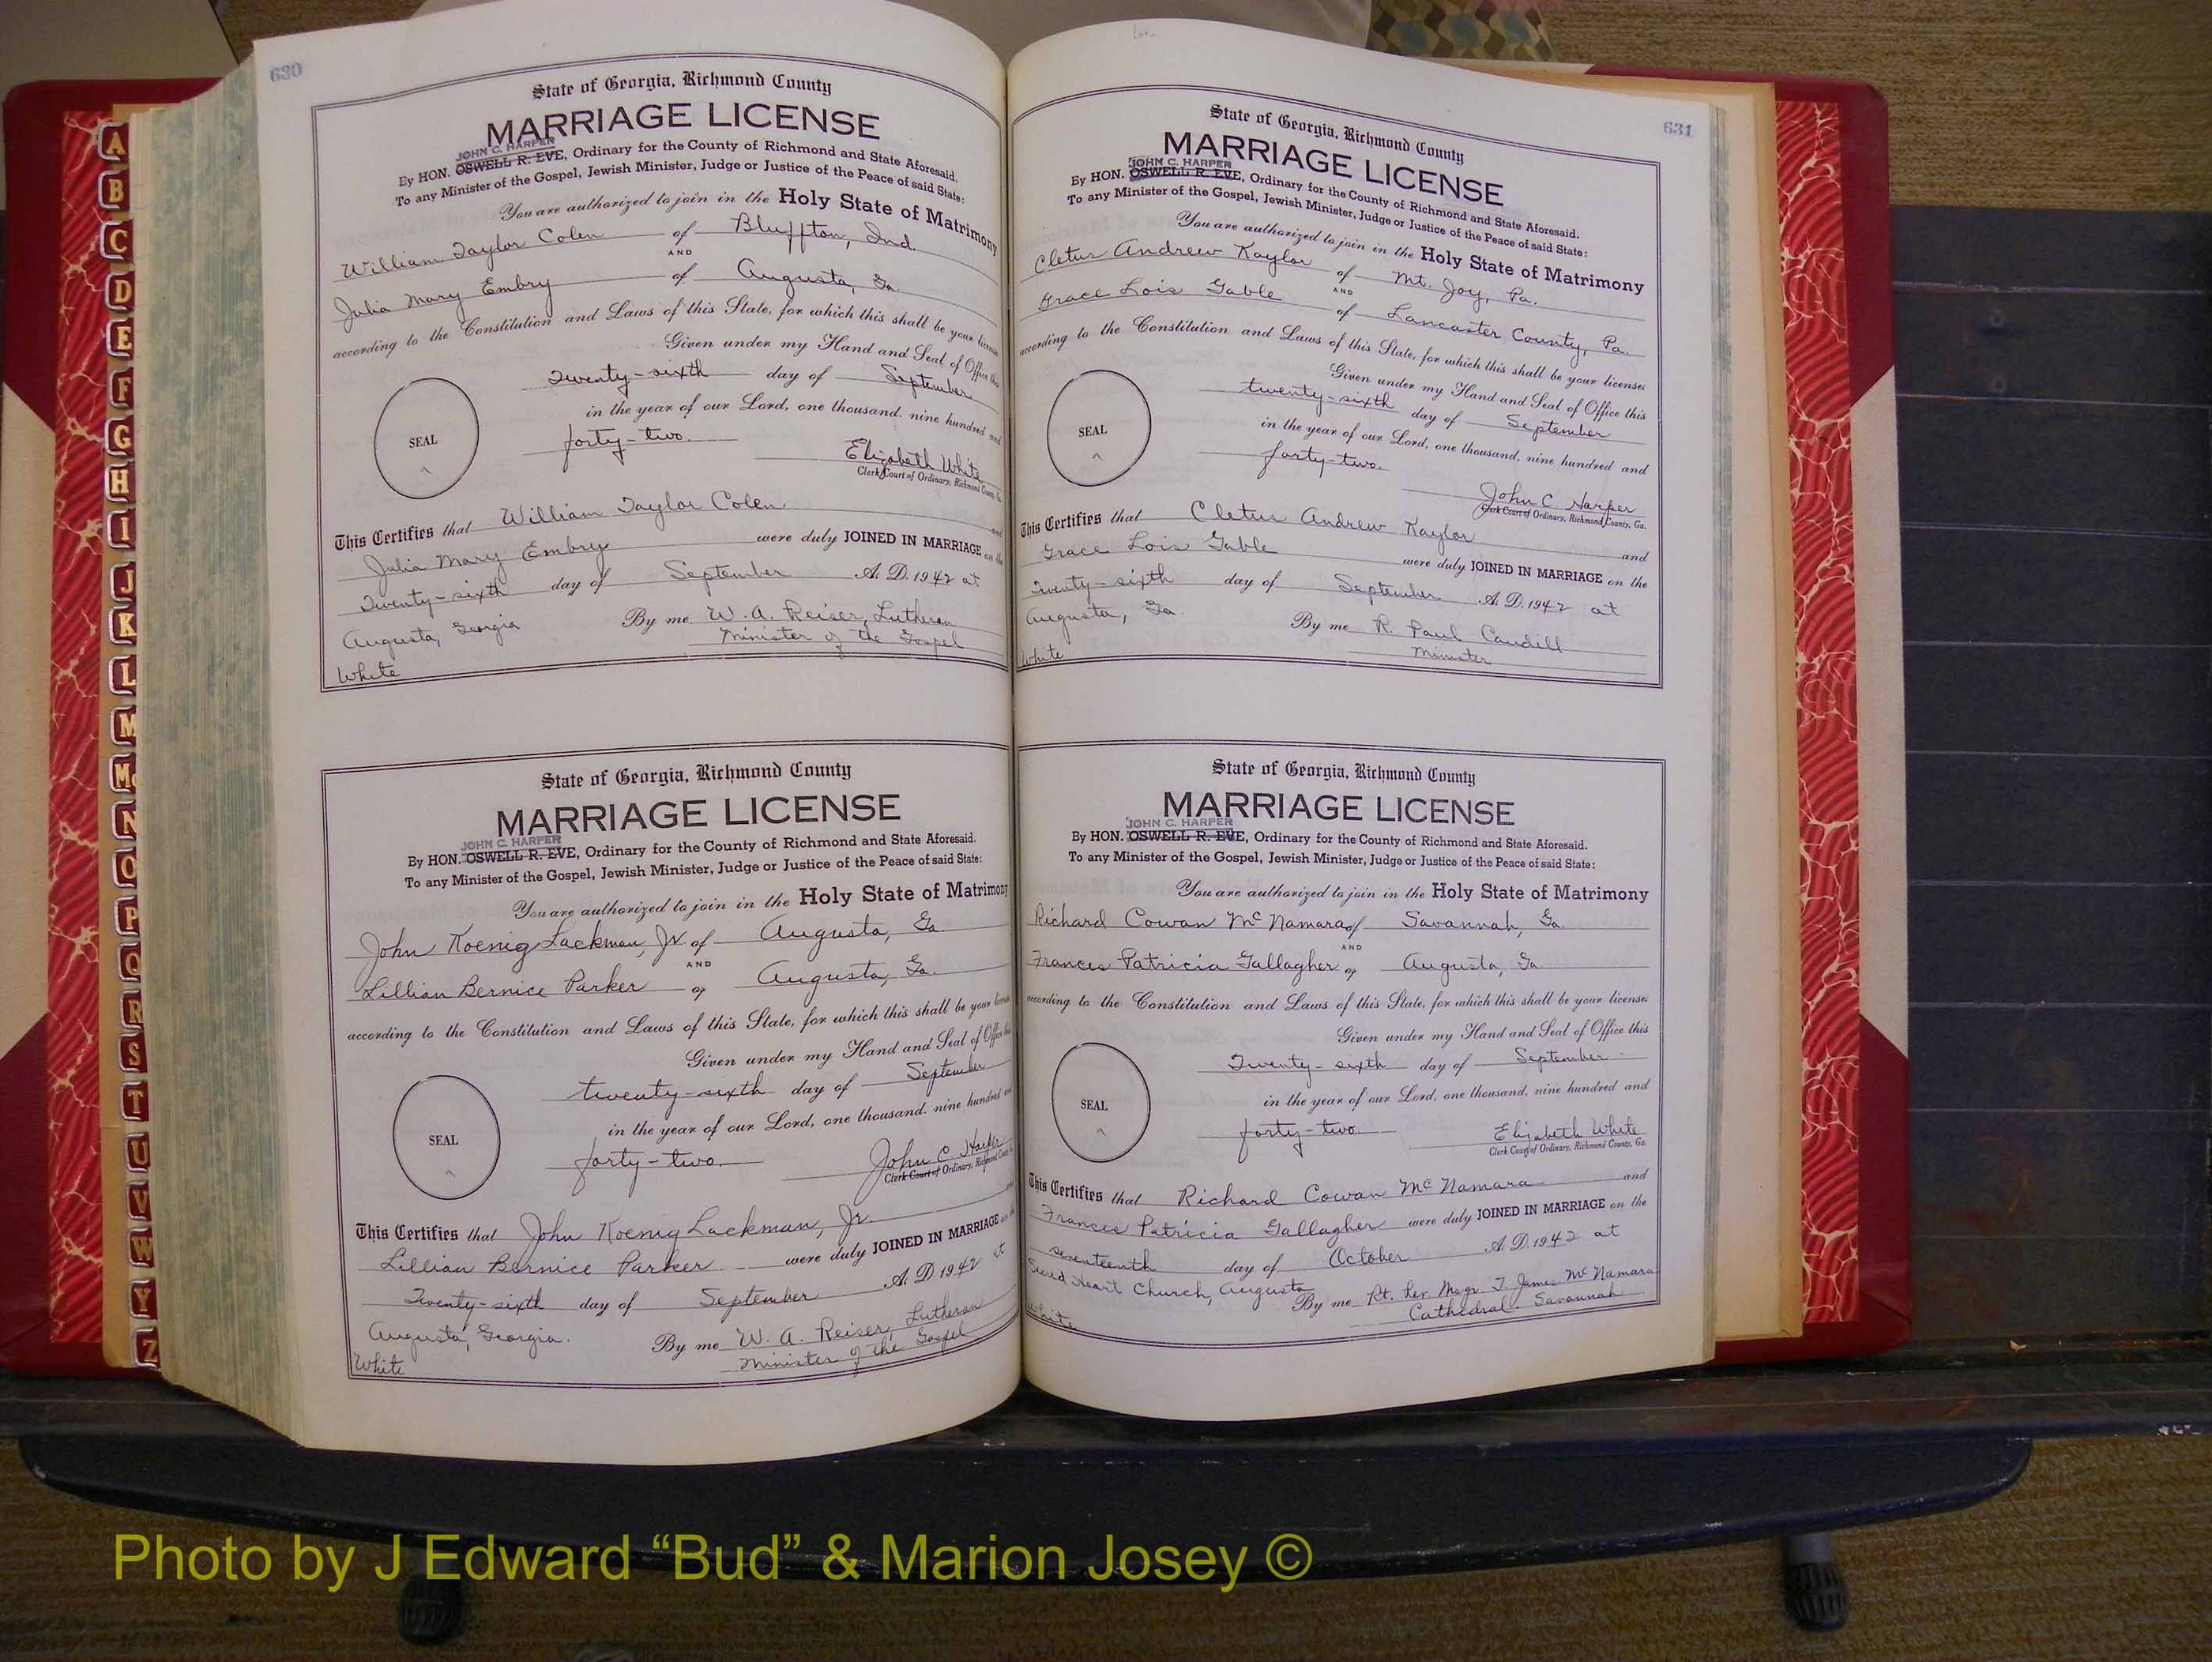 630
State of Georgia, Richmond County
MARRIAGE LICENSE
JOHN C. HARPER
By HON. OSWELL R. EVE, Ordinary for the County of Richmond and State Aforesaid.
To any Minister of the Gospel, Jewish Minister, Judge or Justice of the Peace of said State:
You are authorized to join in the Holy State of Matrimony
William Taylor Colen of Bluffton, Ind.
AND
Julia Mary Embry of Augusta, Ga.
according to the Constitution and Laws of this State, for which this shall be your license
Given under my Hand and Seal of Office this
Twenty-sixth day of September
in the year of our Lord, one thousand, nine hundred and
SEAL
forty-two.
Elizabeth White
Clerk Court of Ordinary, Richmond County, Ga.
This Certifies that William Taylor Colen and
Julia Mary Embry were duly JOINED IN MARRIAGE on the
Twenty-sixth day of September A. D. 1942 at
Augusta, Georgia By me W. A. Reiser, Lutheran
Minister of the Gospel
White
State of Georgia, Richmond County
MARRIAGE LICENSE
JOHN C. HARPER
By HON. OSWELL R. EVE, Ordinary for the County of Richmond and State Aforesaid.
To any Minister of the Gospel, Jewish Minister, Judge or Justice of the Peace of said State:
You are authorized to join in the Holy State of Matrimony
John Koenig Lackman, Jr. of Augusta, Ga.
AND
Lillian Bernice Parker of Augusta, Ga.
according to the Constitution and Laws of this State, for which this shall be your license
Given under my Hand and Seal of Office this
twenty-sixth day of September
in the year of our Lord, one thousand, nine hundred and
SEAL
forty-two.
John C Harper
Clerk Court of Ordinary, Richmond County
This Certifies that John Koenig Lackman, Jr. and
Lillian Bernice Parker were duly JOINED IN MARRIAGE on the
Twenty-sixth day of September A. D. 1942 at
Augusta, Georgia. By me W. A. Reiser, Lutheran
Minister of the Gospel
White
631
State of Georgia, Richmond County
MARRIAGE LICENSE
JOHN C. HARPER
By HON. OSWELL R. EVE, Ordinary for the County of Richmond and State Aforesaid.
To any Minister of the Gospel, Jewish Minister, Judge or Justice of the Peace of said State:
You are authorized to join in the Holy State of Matrimony
Cletus Andrew Kaylor of Mt. Joy, Pa.
AND
Grace Lois Gable of Lancaster County, Pa.
according to the Constitution and Laws of this State, for which this shall be your license
Given under my Hand and Seal of Office this
twenty-sixth day of September
in the year of our Lord, one thousand, nine hundred and
SEAL
forty-two.
John C Harper
Clerk Court of Ordinary, Richmond County, Ga.
This Certifies that Cletus Andrew Kaylor and
Grace Lois Gable were duly JOINED IN MARRIAGE on the
Twenty-sixth day of September A. D. 1942 at
Augusta, Ga. By me R. Paul Caudill
Minister
White
State of Georgia, Richmond County
MARRIAGE LICENSE
JOHN C. HARPER
By HON. OSWELL R. EVE, Ordinary for the County of Richmond and State Aforesaid.
To any Minister of the Gospel, Jewish Minister, Judge or Justice of the Peace of said State:
You are authorized to join in the Holy State of Matrimony
Richard Cowan McNamara of Savannah, Ga.
AND
Frances Patricia Gallagher of Augusta, Ga.
according to the Constitution and Laws of this State, for which this shall be your license
Given under my Hand and Seal of Office this
Twenty-sixth day of September
in the year of our Lord, one thousand, nine hundred and
SEAL
forty-two.
Elizabeth White
Clerk Court of Ordinary, Richmond County, Ga.
This Certifies that Richard Cowan McNamara and
Frances Patricia Gallagher were duly JOINED IN MARRIAGE on the
seventeenth day of October A. D. 1942 at
Sacred Heart Church, Augusta By me Rt. Rev. Msgr. T. James McNamara
Cathedral. Savannah
White
A
B
C
D
E
F
G
H
I
J
K
L
M
Mc
N
O
P
Q
R
S
T
U
V
W
Y
Z
Photo by J Edward “Bud” & Marion Josey ©